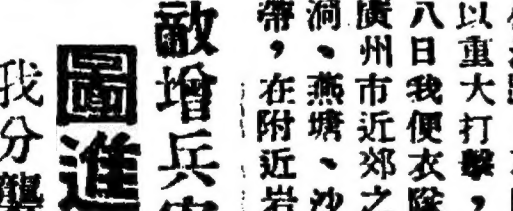 以重大打擊，
八日我便衣隊
廣州市近郊之
洞、燕塘、沙
帶，在附近岩
敵增兵
圖進
我分